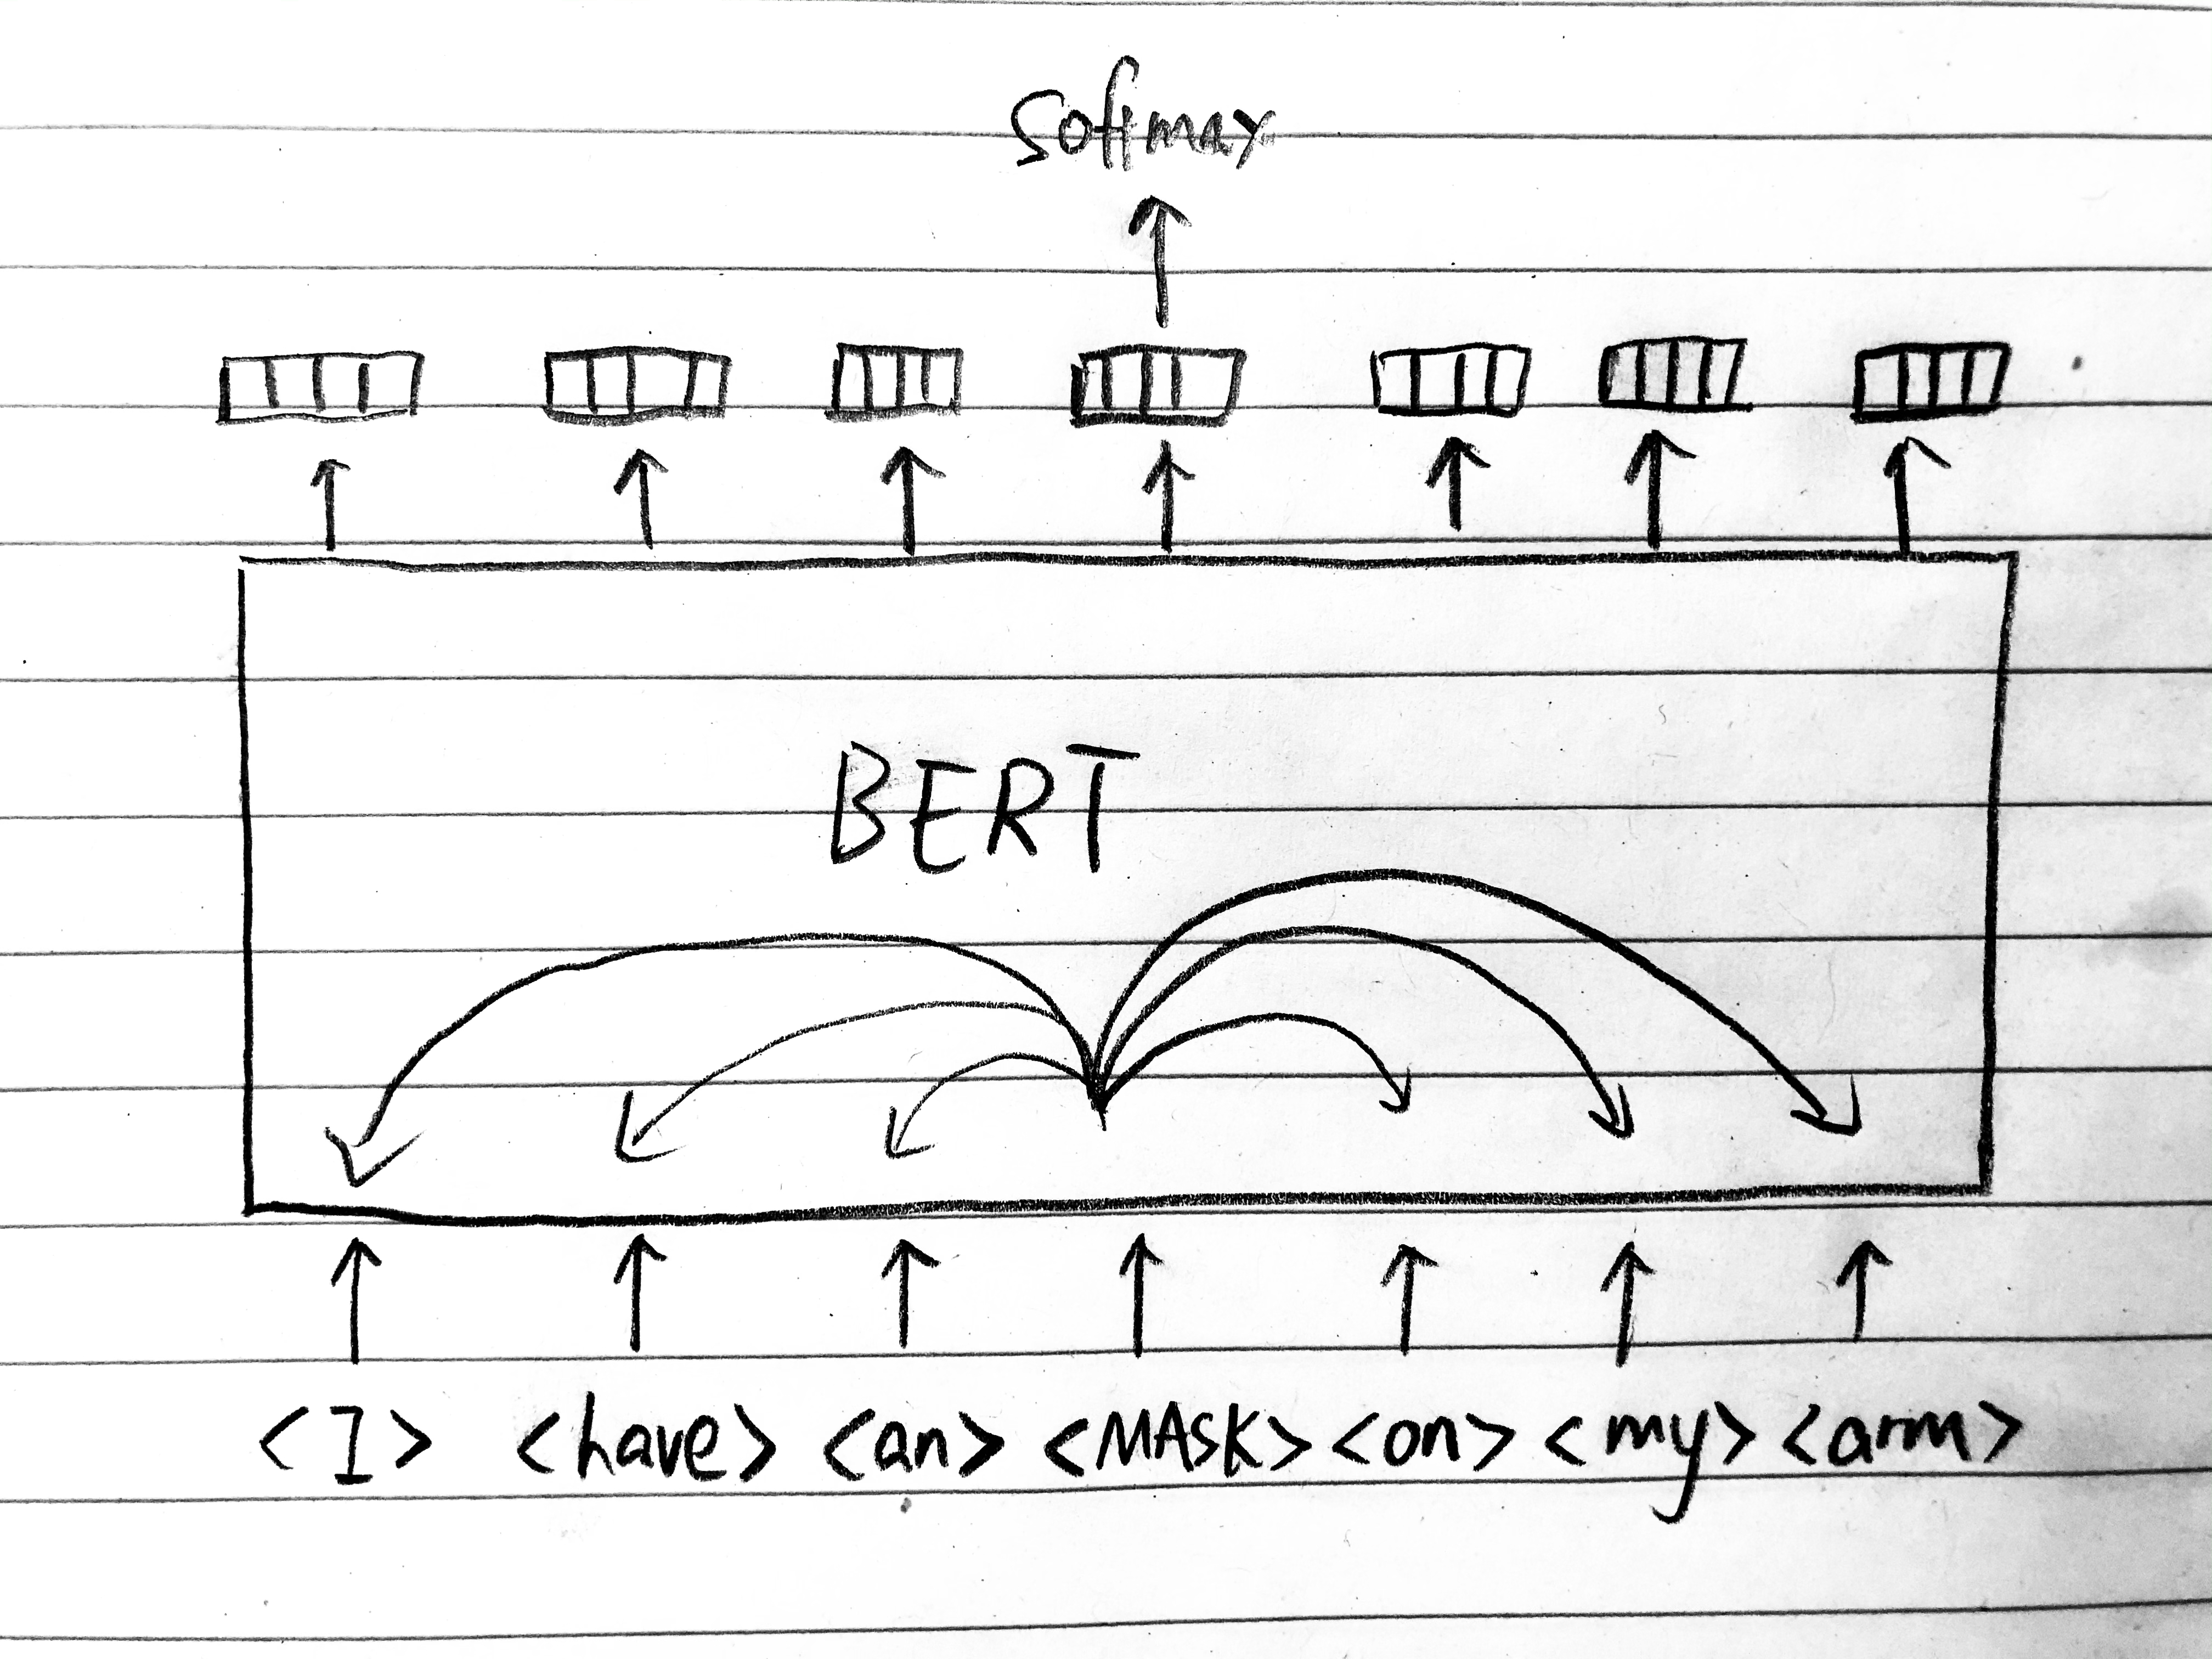 Softmax
BERT
<I> <have> <an> <MASK> <on> <my> <arm>